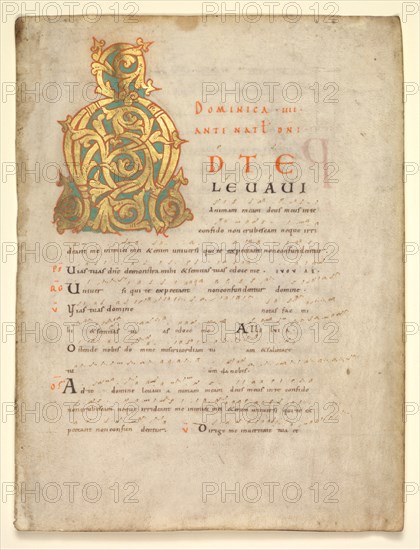 DOMINICA IIII
ANTE NAT DNI
A
D TE
LEVAVI
animam meam deus meus in te
confido non erubescam neque irri
deant me inimici mei & enim universi qui te expectant non confundentur
PS Vias tuas dne demonstra mihi & semitas tuas edoce me
RG Universi qui te expectant non confundentur domine
V Vias tuas domine notas fac mi
hi & semitas tuas edoce me Alleluia
Ostende nobis domine misericordiam tuam & salutare
tuum da nobis
OF Ad te domine levavi animam meam deus meus in te confido
non erubescam neque irrideant me inimici mei & enim universi qui te ex
pectant non confundentur V Dirige me in veritate tua et
PHOTO12